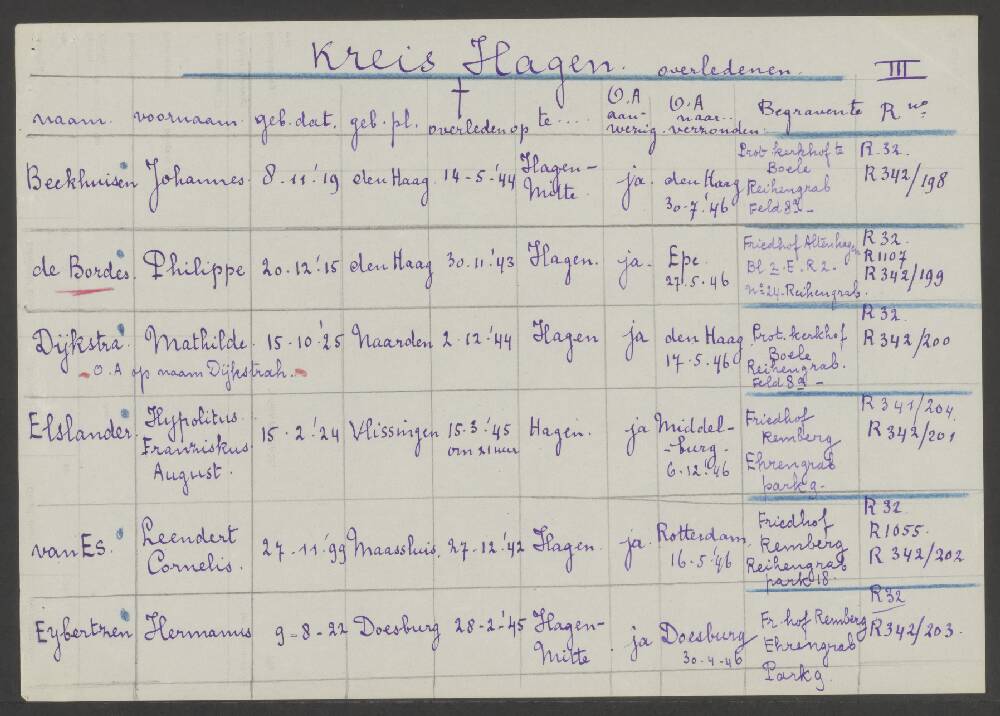 Kreis Hagen. overledenen. III
naam. voornaam. geb. dat. geb. pl. † overleden op te .... O.A aan- wezig. O.A naar verzonden. Begravente R no
Beekhuisen Johannes. 8-11-'19 den Haag. 14-5-'44 Hagen- Mitte ja. den Haag 30-7-'46 Prot. kerkhof te Boele Reihengrab Feld 8a- R 32. R 342/198
de Bordes. Philippe 20-12-'15 den Haag 30-11-'43 Hagen. ja. Epe. 27-5-46 Friedhof Altenhagen Bl 2-E.R 2. no 24-Reihengrab. R 32. R 1107 R 342/199
Dÿkstra Mathilde. 15-10-'25 Naarden 2-12-'44 Hagen ja den Haag 17-5-'46 Prot. kerkhof Boele Reihengrab. Feld 8a- R 32. R 342/200
- O.A op naam Dÿkstrah. -
Elslander. Hypolitus. Franziskus August. 15-2-'24 Vlissingen 15-3-'45 om 21 uur Hagen. ja Middel- -burg- 6-12-'46 Friedhof Remberg Ehrengrab park g. R 341/204. R 342/201
van Es. Leendert Cornelis. 27-11-'99 Maassluis. 27-12-'42 Hagen. ja. Rotterdam. 16-5-'46 Friedhof Remberg Reihengrab park 18. R 32. R 1055. R 342/202
Eybertzen Hermanus 9-8-22 Doesburg 28-2-'45 Hagen- Mitte ja Doesburg 30-4-46 Fr. hof Remberg Ehrengrab Park g. R 32 R 342/203.